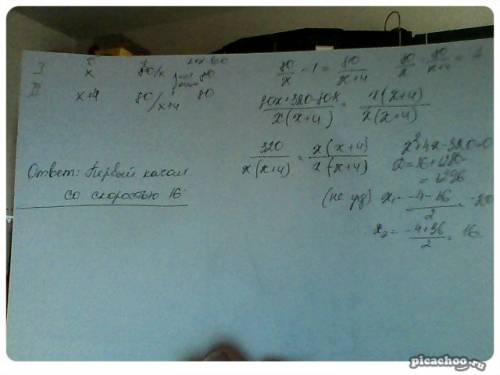 I x 80/x 80
II x+4 80/x+4 80
80/x - 1 = 80/x+4
80/x - 80/x+4 = 1
80x+320-80x/x(x+4) = x(x+4)/x(x+4)
320/x(x+4) = x(x+4)/x(x+4)
x²+4x-320=0
= 1296
(не уд) x₁= -4-36/2 = -20
x₂= -4+36/2 = 16
Ответ: Первый ехал
со скоростью 16
picachoo.ru